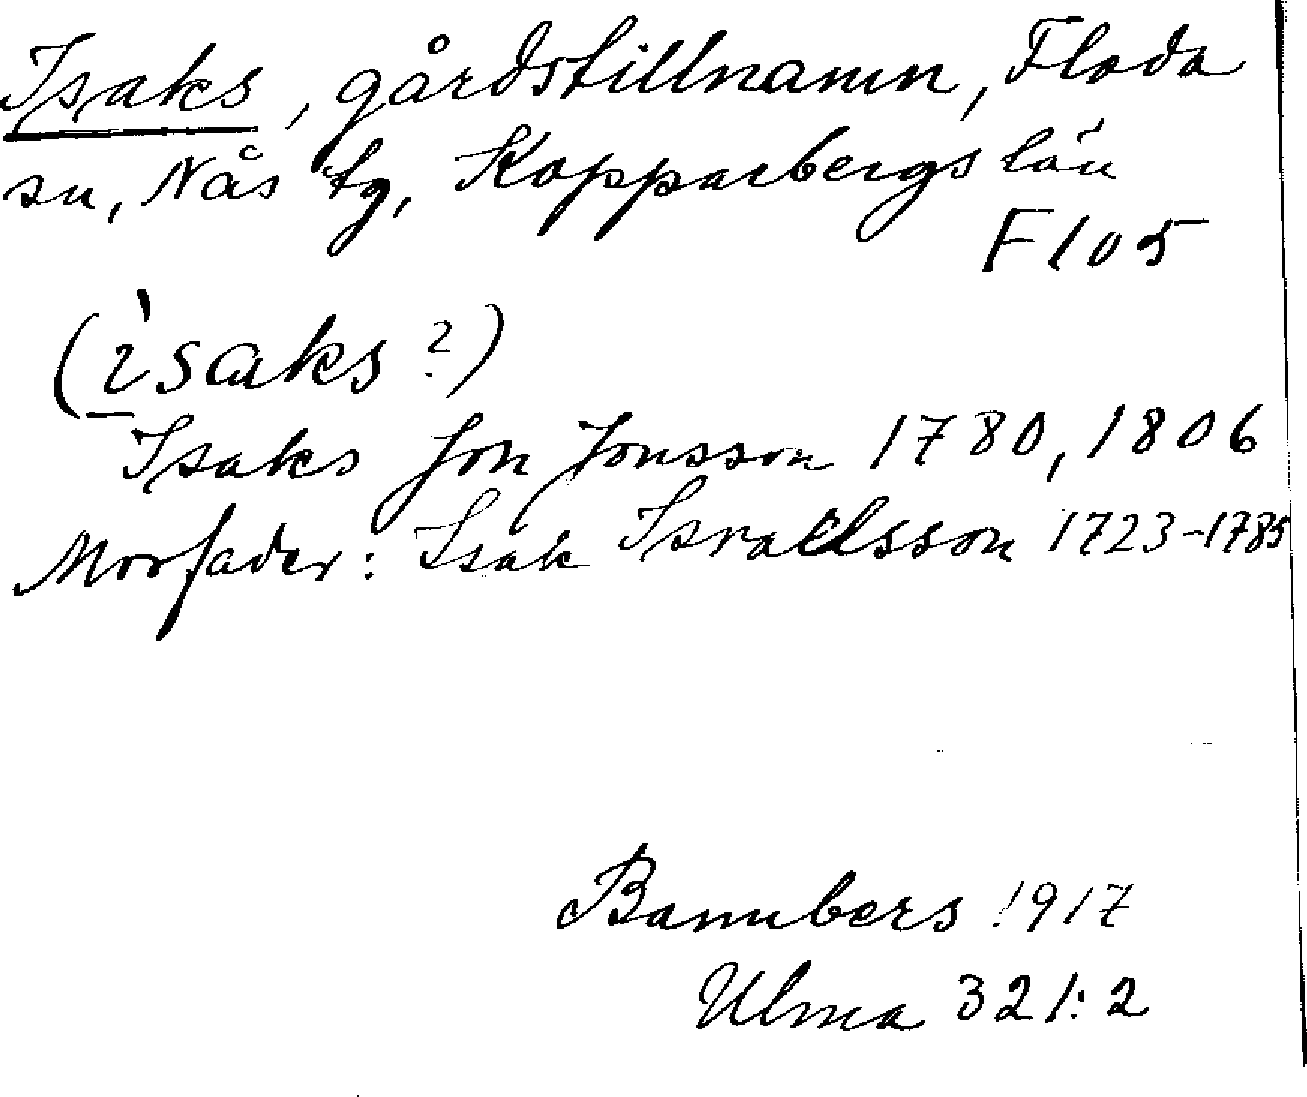 Isaks, gårdstillnamn, Floda
sn, Nås tg, Kopparbergs län
F105
(ìsaks?)
Isaks Jon Jonsson 1780, 1806
Morfader: Isak Israelsson 1723-1785
Bannbers 1917
Ulma 321:2